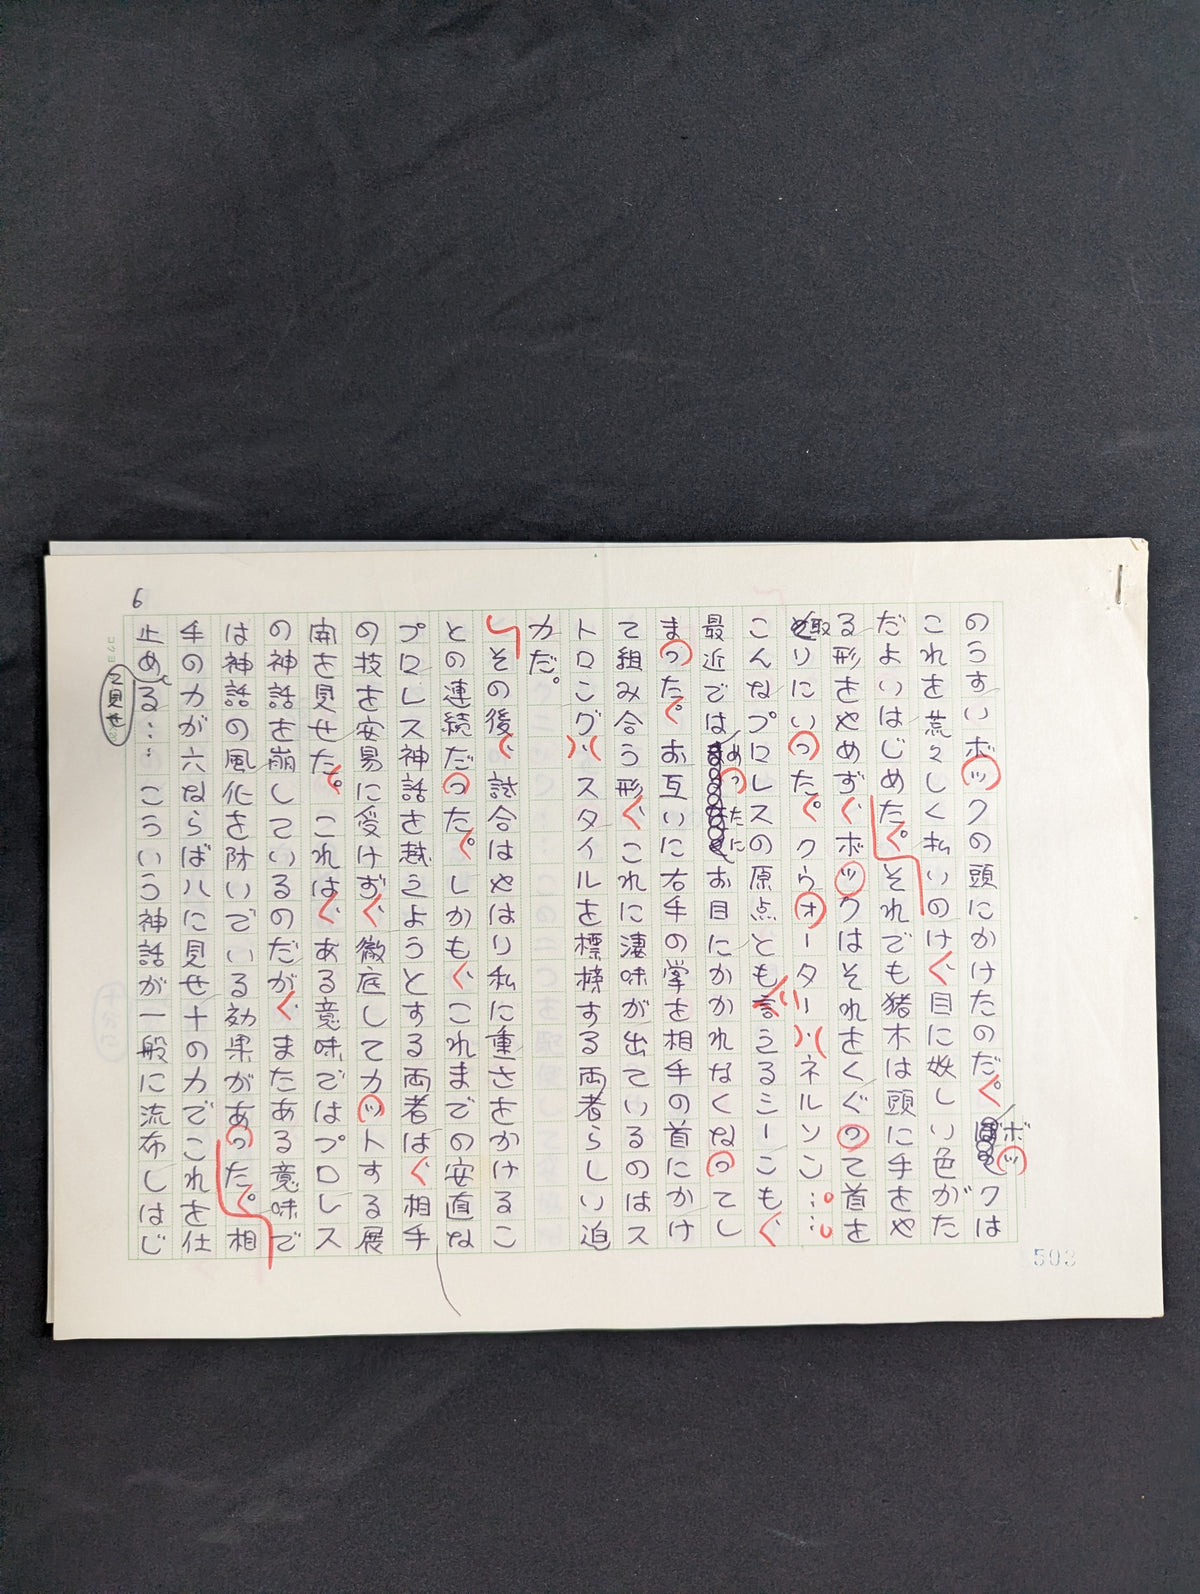 のうすいボックの頭にかけたのだ。ボックは
これを荒々しく払いのけ、目に妖しい色がた
だよいはじめた。それでも猪木は頭に手をや
る形をやめず、ボックはそれをくぐって首を
取りにいった。クウォーター・ネルソン……
こんなプロレスの原点とも言えるシーンも、
最近ではあったにお目にかかれなくなってし
まった。お互いに右手の掌を相手の首にかけ
て組み合う形、これに凄味が出ているのはス
トロング・スタイルを標榜する両者らしい迫
力だ。
その後、試合はやはり私に重さをかけるこ
との連続だった。しかも、これまでの安直な
プロレス神話を越えようとする両者は、相手
の技を安易に受けず、徹底してカットする展
開を見せた。これは、ある意味ではプロレス
の神話を崩しているのだが、またある意味で
は神話の風化を防いでいる効果があった。相
手の力が六ならば八に見せ十の力でこれを仕
止めて見せる…こういう神話が一般に流布しはじ
6
503
コクヨ